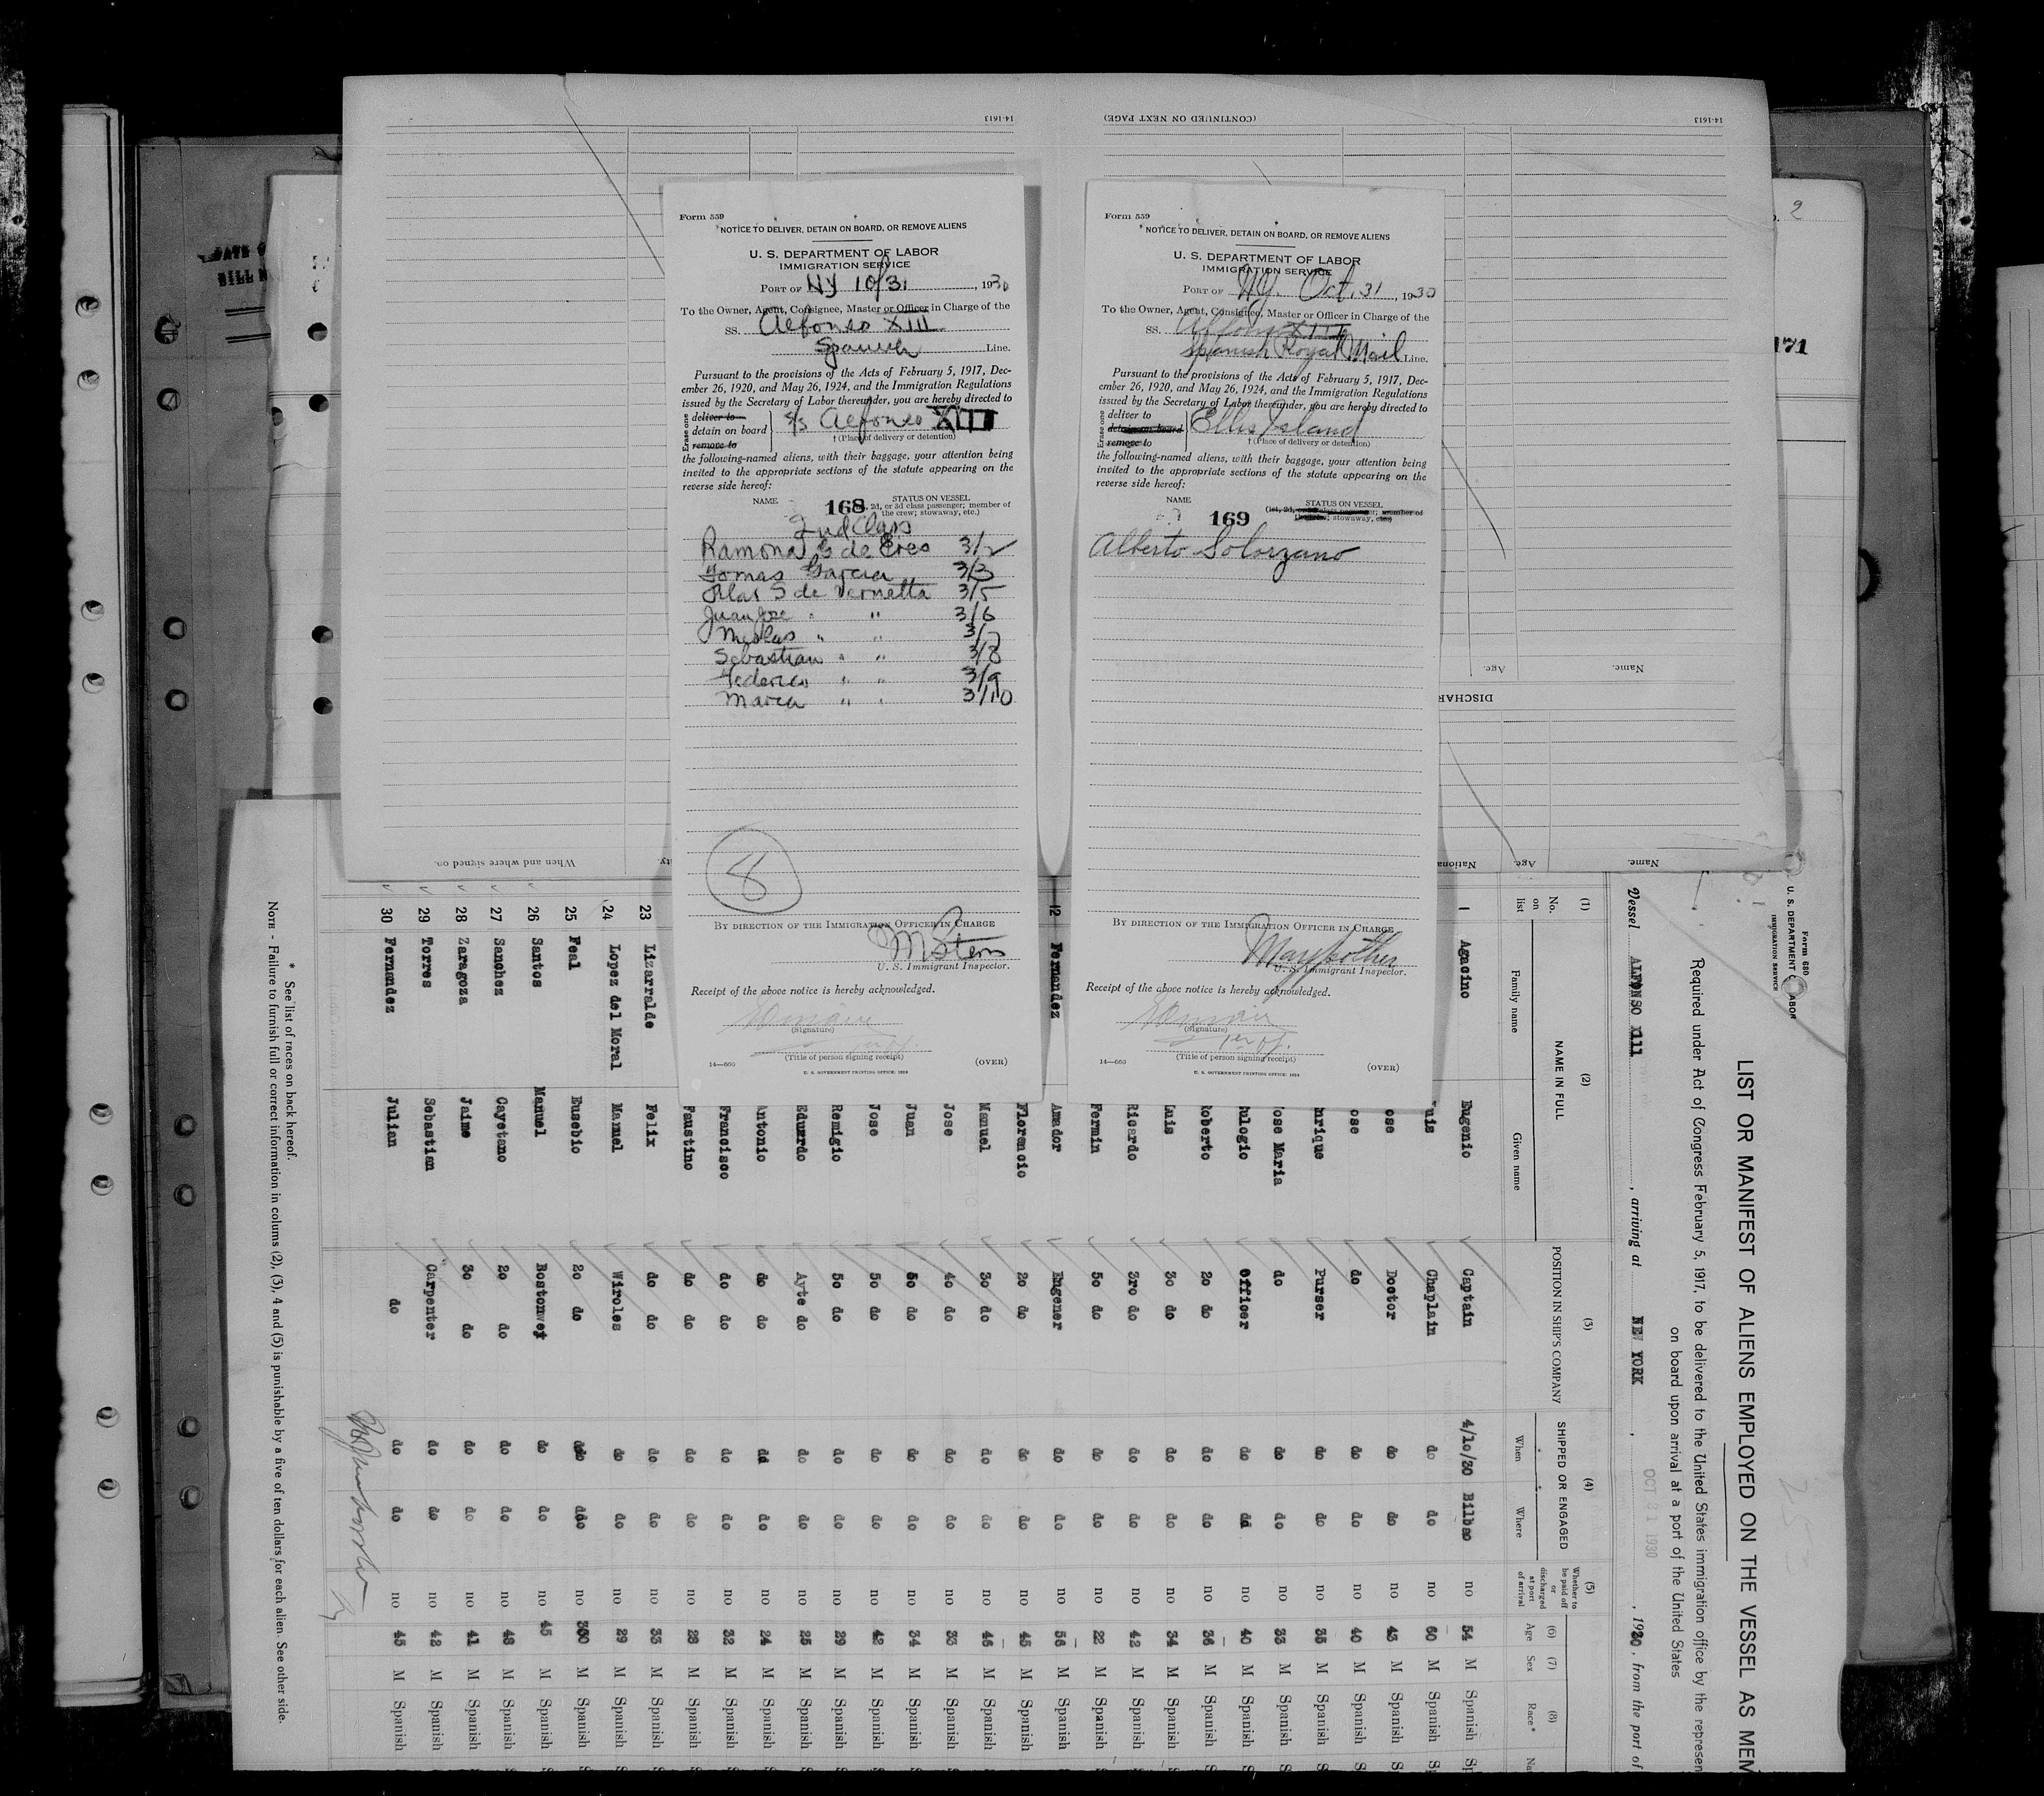 14-1613
(CONTINUED ON NEXT PAGE)
14-1613
Form 559
NOTICE TO DELIVER, DETAIN ON BOARD, OR REMOVE ALIENS
U. S. DEPARTMENT OF LABOR
IMMIGRATION SERVICE
PORT OF NY 10/31, 1930
To the Owner, Agent, Consignee, Master or Officer in Charge of the
SS. Alfonso XIII
Spanish Line.
Pursuant to the provisions of the Acts of February 5, 1917, Dec-
ember 26, 1920, and May 26, 1924, and the Immigration Regulations
issued by the Secretary of Labor thereunder, you are hereby directed to
Erase one
deliver to
detain on board
remove to
S/S Alfonso XIII
† (Place of delivery or detention)
the following-named aliens, with their baggage, your attention being
invited to the appropriate sections of the statute appearing on the
reverse side hereof:
NAME
168
STATUS ON VESSEL
, 2d, or 3d class passenger; member of
the crew; stowaway, etc.)
2nd Class
Ramona G de Eres 3/2
Tomas Garcia 3/3
Pilar S de Vernetta 3/5
Juan Jose " " 3/6
Nicolas " " 3/7
Sebastian " " 3/8
Federico " " 3/9
Maria " " 3/10
8
BY DIRECTION OF THE IMMIGRATION OFFICER IN CHARGE
M Stern
U. S. Immigrant Inspector.
Receipt of the above notice is hereby acknowledged.
(Signature)
(Title of person signing receipt)
14—660
(OVER)
U. S. GOVERNMENT PRINTING OFFICE: 1929
Form 559
NOTICE TO DELIVER, DETAIN ON BOARD, OR REMOVE ALIENS
U. S. DEPARTMENT OF LABOR
IMMIGRATION SERVICE
PORT OF NY. Oct. 31, 1930
To the Owner, Agent, Consignee, Master or Officer in Charge of the
SS. Alfonso XIII
Spanish Royal Mail Line.
Pursuant to the provisions of the Acts of February 5, 1917, Dec-
ember 26, 1920, and May 26, 1924, and the Immigration Regulations
issued by the Secretary of Labor thereunder, you are hereby directed to
Erase one
deliver to
detain on board
remove to
Ellis Island
† (Place of delivery or detention)
the following-named aliens, with their baggage, your attention being
invited to the appropriate sections of the statute appearing on the
reverse side hereof:
NAME
169
STATUS ON VESSEL
(1st, 2d, ; member of
; stowaway, etc.)
Alberto Solorzano
BY DIRECTION OF THE IMMIGRATION OFFICER IN CHARGE
U. S. Immigrant Inspector.
Receipt of the above notice is hereby acknowledged.
(Signature)
(Title of person signing receipt)
14—660
(OVER)
U. S. GOVERNMENT PRINTING OFFICE: 1929
2
171
Age.
Name.
DISCHAR
When and where signed on.
Nationa
Age.
Name.
Form 680
U. S. DEPARTMENT OF LABOR
IMMIGRATION SERVICE
LIST OR MANIFEST OF ALIENS EMPLOYED ON THE VESSEL AS MEM
Required under Act of Congress February 5, 1917, to be delivered to the United States immigration office by the represen
on board upon arrival at a port of the United States
Vessel ALFONSO XIII, arriving at NEW YORK, OCT 31 1930, 1930, from the port of
(1) (2) (3) (4) (5) (6) (7) (8)
No. on list
NAME IN FULL
Family name
Given name
POSITION IN SHIP'S COMPANY
SHIPPED OR ENGAGED
When
Where
Whether to be paid off or discharged at port of arrival
Age
Sex
Race*
1 Agacino Eugenio Captain 4/10/30 Bilbao no 54 M Spanish
uis Chaplain do do no 60 M Spanish
ose Doctor do do no 43 M Spanish
ose do do do no 40 M Spanish
nrique Purser do do no 35 M Spanish
ose Maria do do do no 33 M Spanish
ulogio Officer do do no 40 M Spanish
Roberto 2o do do do no 36 M Spanish
Luis 3o do do do no 34 M Spanish
Ricardo 3ro do do do no 42 M Spanish
Fermin 5o do do do no 22 M Spanish
12 Fernandez Amador Engener do do no 56 M Spanish
Florencio 2o do do do no 45 M Spanish
Manuel 3o do do do no 46 M Spanish
Jose 4o do do do no 33 M Spanish
Juan 5o do do do no 34 M Spanish
Jose 5o do do do no 42 M Spanish
Remigio 5o do do do no 29 M Spanish
Eduardo Ayte do do do no 25 M Spanish
Antonio do do dd do no 24 M Spanish
Francisco do do do do no 32 M Spanish
Faustino do do do do no 28 M Spanish
23 Lizarralde Felix do do do do no 33 M Spanish
24 Lopez del Moral Manuel Wiroles do do no 29 M Spanish
25 Feal Eusebio 2o do do do no M Spanish
26 Santos Manuel do do no 45 M Spanish
27 Sanchez Cayetano 2o do do do no 48 M Spanish
28 Zaragoza Jaime 3o do do do no 41 M Spanish
29 Torres Sebastian Carpenter do do no 42 M Spanish
30 Fernandez Julian do do do no 45 M Spanish
* See list of races on back hereof.
NOTE - Failure to furnish full or correct information in colums (2), (3), 4 and (5) is punishable by a five of ten dollars for each alien. See other side.